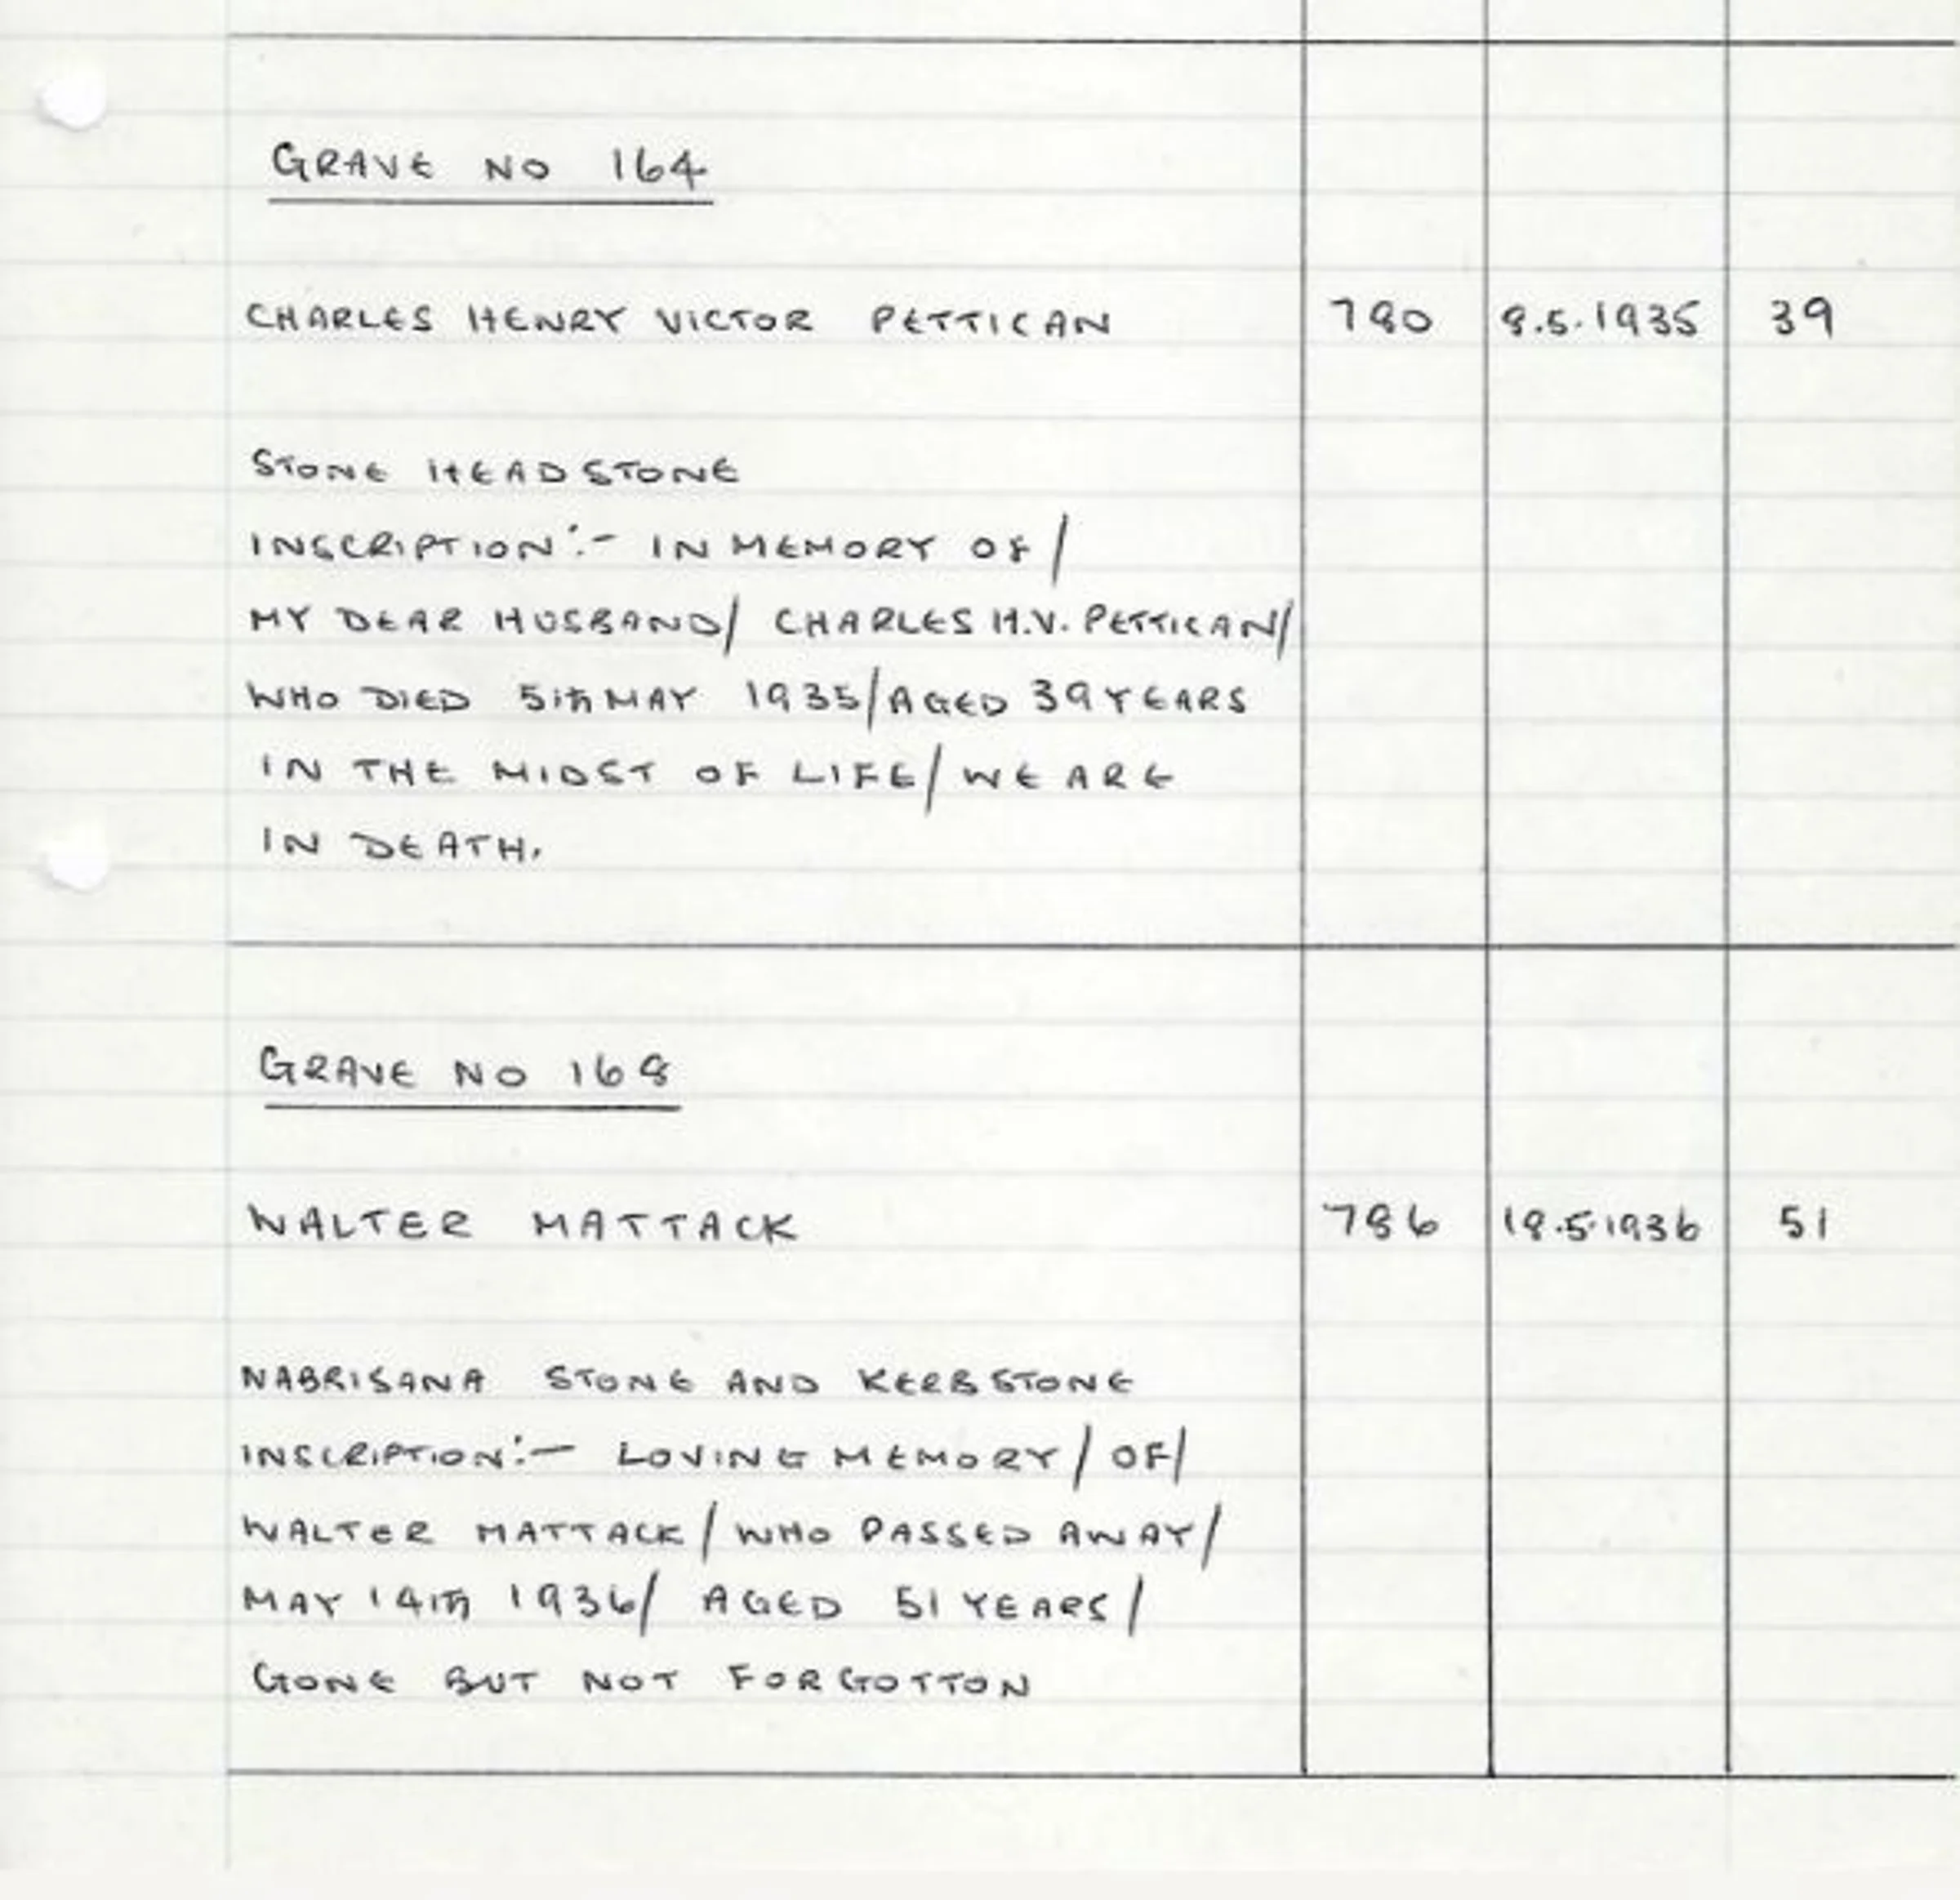 GRAVE NO 164
CHARLES HENRY VICTOR PETTICAN 780 8.5.1935 39
STONE HEADSTONE
INSCRIPTION:- IN MEMORY OF/
MY DEAR HUSBAND/ CHARLES H.V. PETTICAN/
WHO DIED 5TH MAY 1935/AGED 39 YEARS
IN THE MIDST OF LIFE/WE ARE
IN DEATH.
GRAVE NO 168
WALTER MATTACK 786 18.5.1936 51
NABRISANA STONE AND KERBSTONE
INSCRIPTION:- LOVING MEMORY/ OF/
WALTER MATTACK/ WHO PASSED AWAY/
MAY 14TH 1936/ AGED 51 YEARS/
GONE BUT NOT FORGOTTON